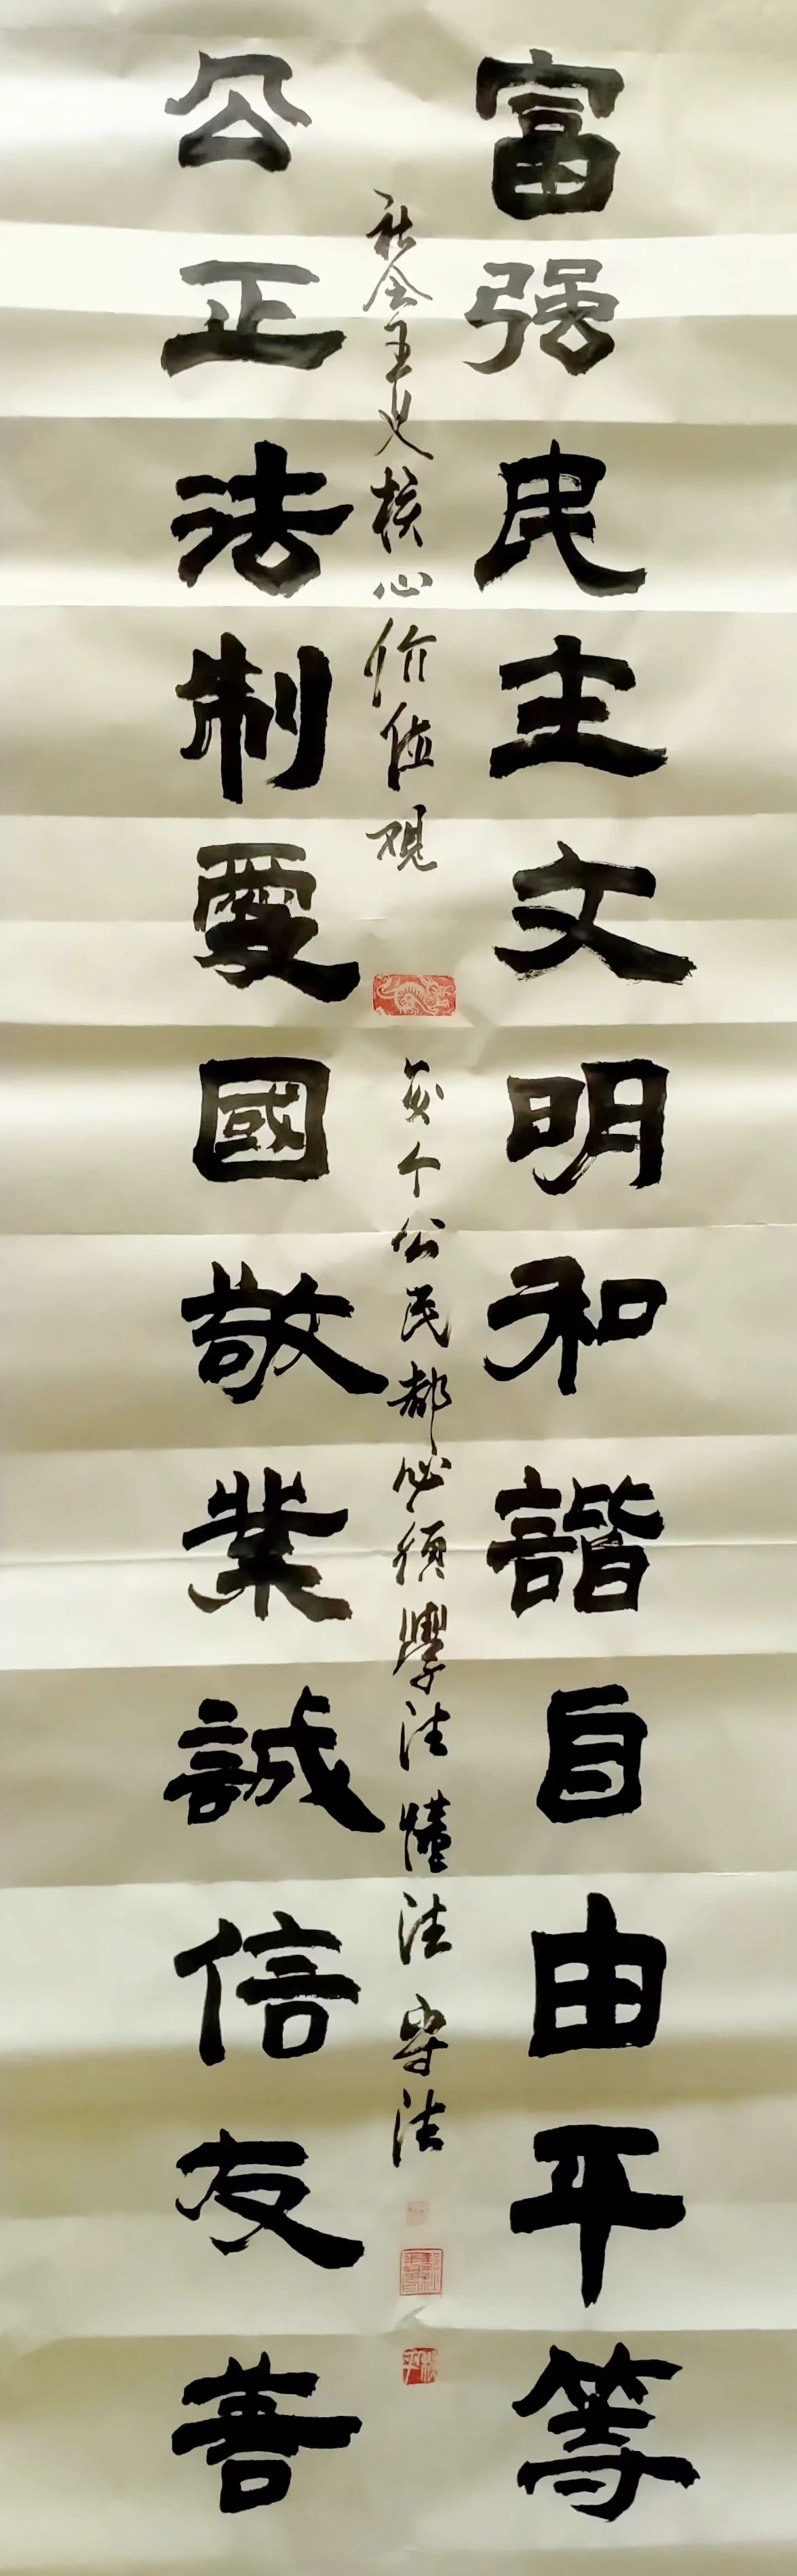 富强民主文明和諧自由平等
社会主义核心价值观
每个公民都必须學法懂法守法
公正法制愛國敬業誠信友善